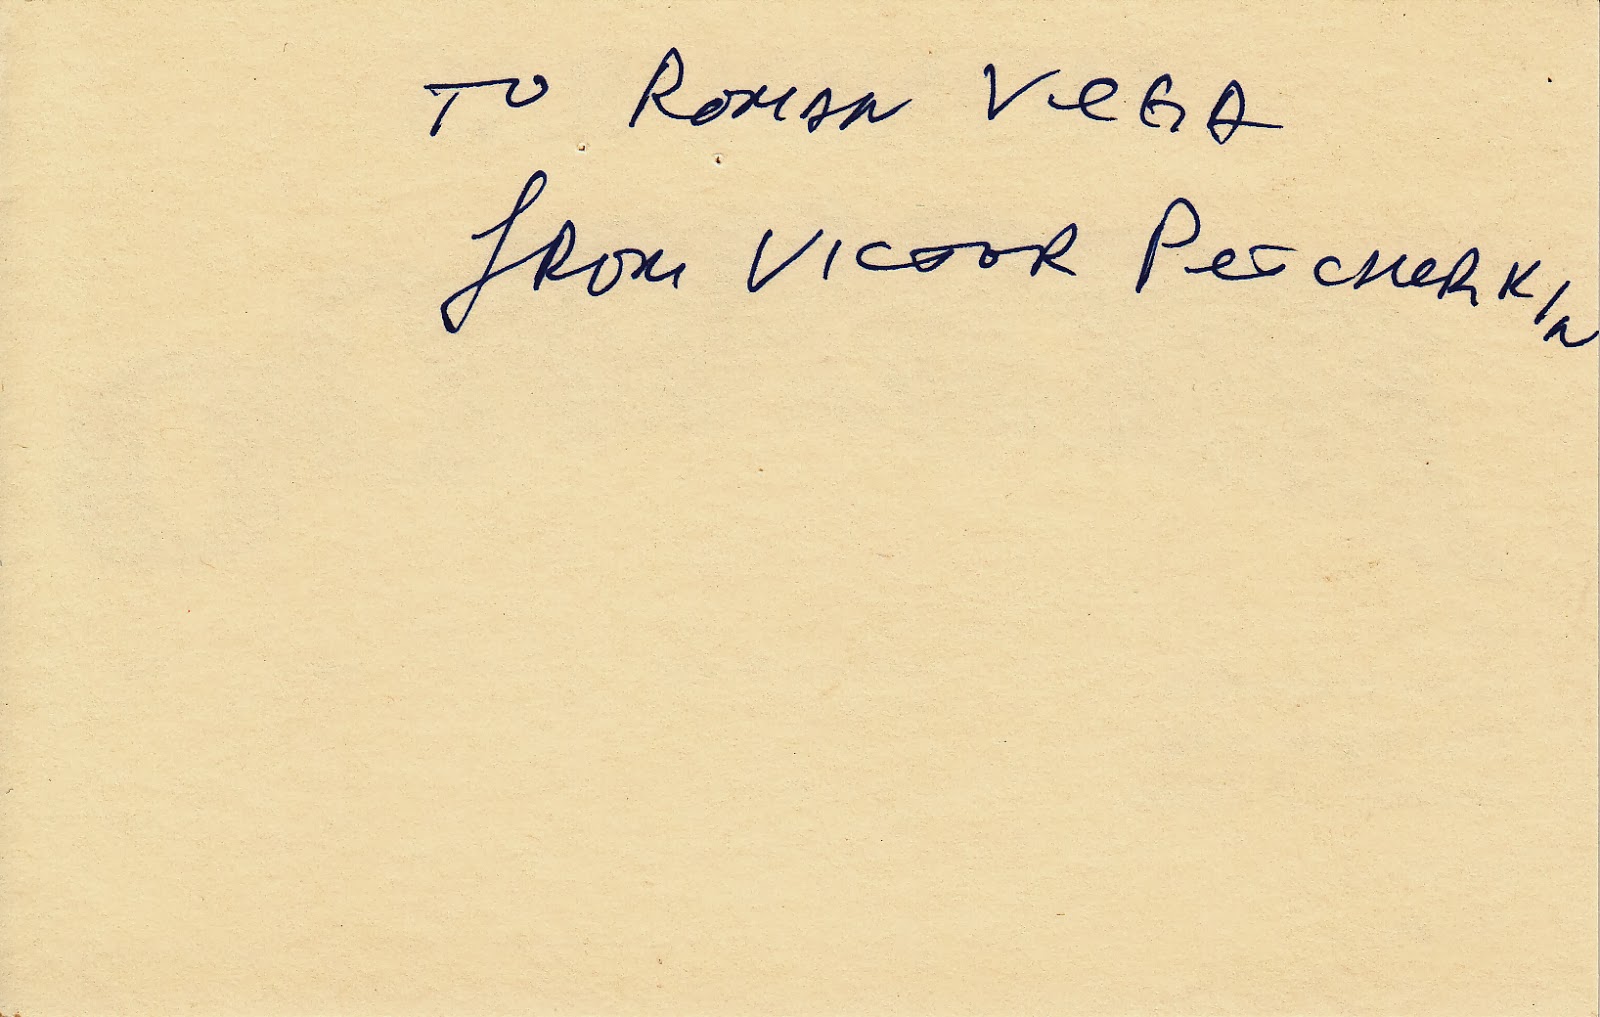 TO ROMAN VEGA
FROM VICTOR PETCHERKIN